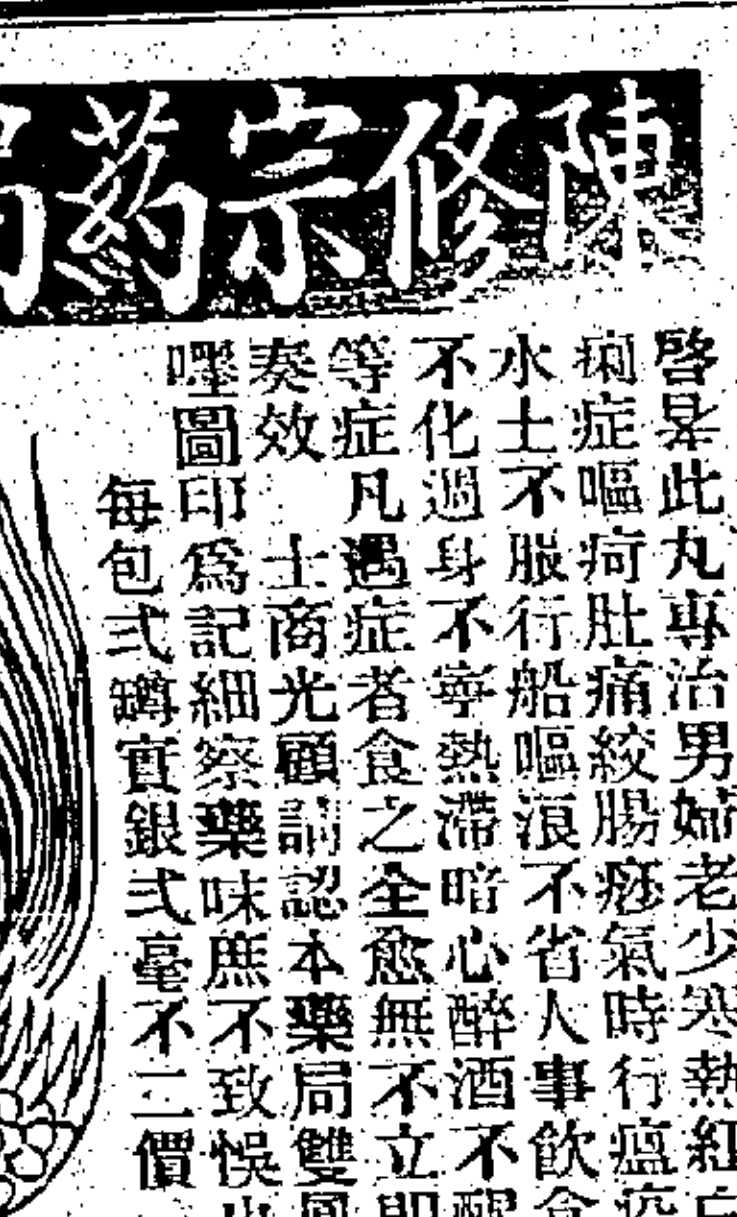 陳修宗葯局
啓者此丸專治男婦老少寒熱紅白
痢症嘔疴肚痛絞腸痧氣時行瘟疫
水土不服行船嘔浪不省人事飲食
不化週身不寧熱滯暗心醉酒不醒
等症凡遇症者食之全愈無不立即
奏效 士商光顧請認本藥局雙鳳
嘜圖印爲記細察藥味庶不致悞也
每包弍罇實銀弍毫不二價